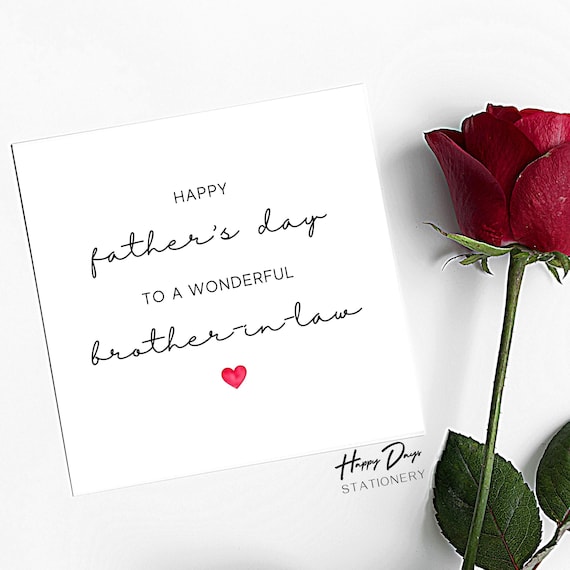 HAPPY
father's day
TO A WONDERFUL
brother-in-law
Happy Days
STATIONERY